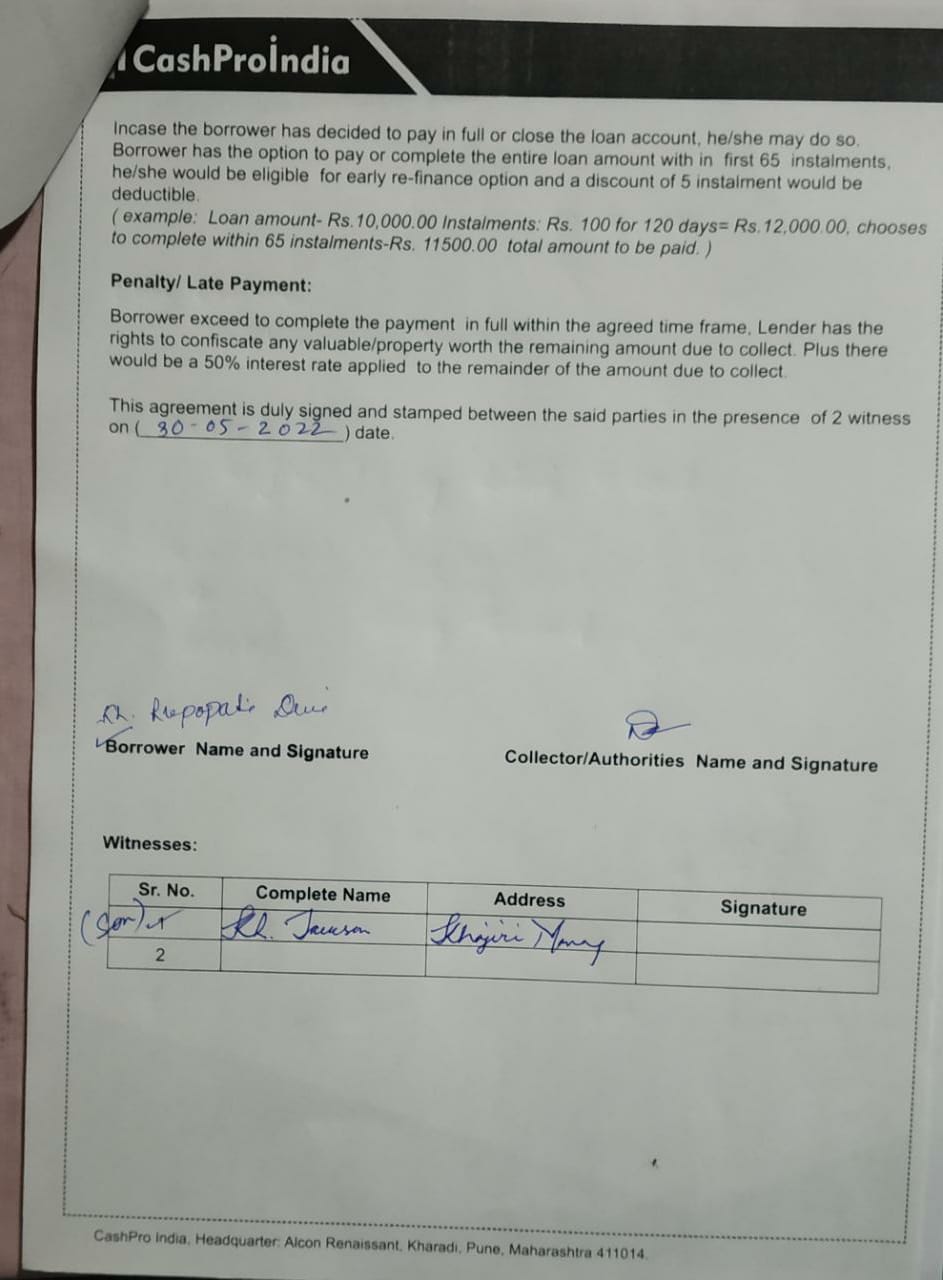 CashProIndia
Incase the borrower has decided to pay in full or close the loan account, he/she may do so.
Borrower has the option to pay or complete the entire loan amount with in first 65 instalments,
he/she would be eligible for early re-finance option and a discount of 5 instalment would be
deductible.
( example: Loan amount- Rs.10,000.00 Instalments: Rs. 100 for 120 days= Rs.12,000.00, chooses
to complete within 65 instalments-Rs. 11500.00 total amount to be paid. )
Penalty/ Late Payment:
Borrower exceed to complete the payment in full within the agreed time frame, Lender has the
rights to confiscate any valuable/property worth the remaining amount due to collect. Plus there
would be a 50% interest rate applied to the remainder of the amount due to collect.
This agreement is duly signed and stamped between the said parties in the presence of 2 witness
on ( 30-05-2022 ) date.
Devi
Borrower Name and Signature
Collector/Authorities Name and Signature
Witnesses:
Sr. No. Complete Name Address Signature
(Son) Kh.
2
CashPro India, Headquarter: Alcon Renaissant, Kharadi, Pune, Maharashtra 411014.